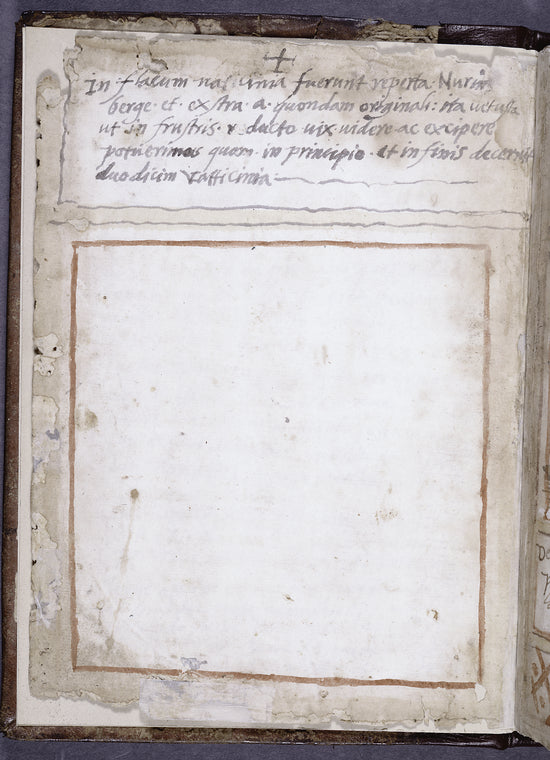 ✝
In flacum nas vinia fuerunt reperta Nurin
berge · et · exstra · a · quondam originali : ita vetusta
ut in frustris · redacto uix uidere ac excipere
potuerimos quam · in principio · et in finis decernit
duodicim vatticinia